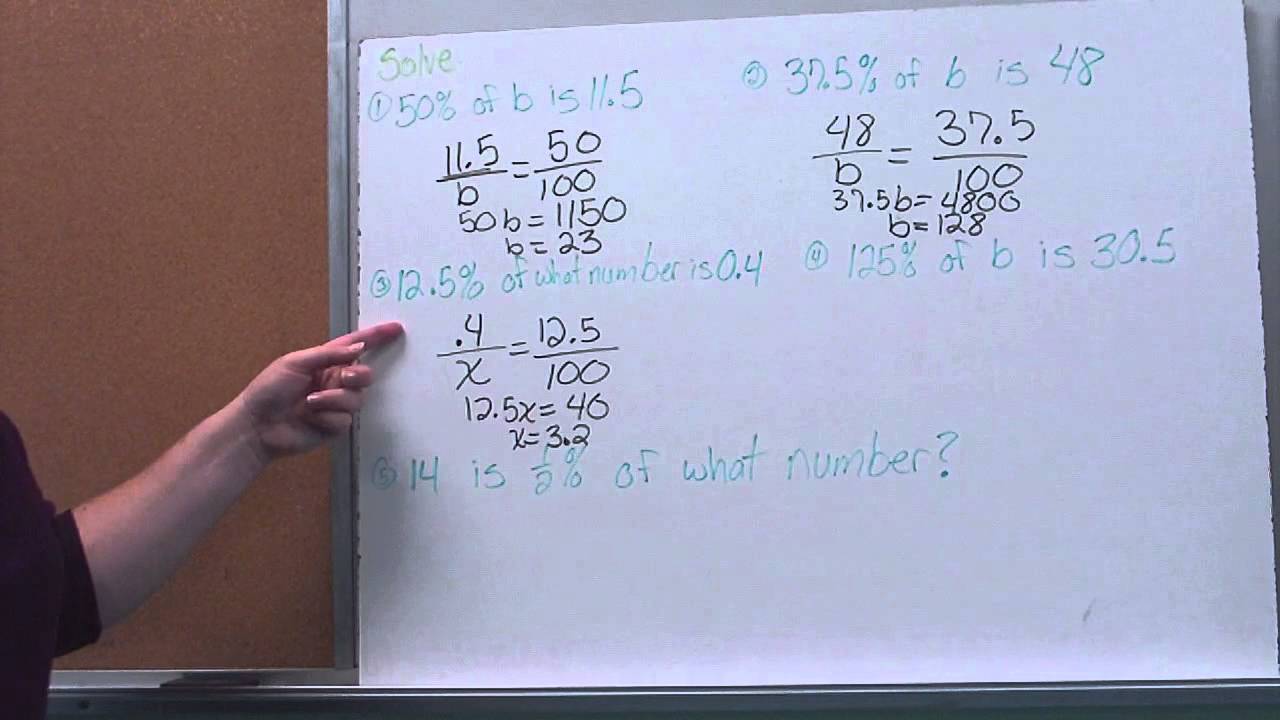 Solve
① 50% of b is 11.5
11.5/b = 50/100
50b = 1150
b = 23
② 37.5% of b is 48
48/b = 37.5/100
37.5b = 4800
b = 128
③ 12.5% of what number is 0.4
.4/x = 12.5/100
12.5x = 40
x = 3.2
④ 125% of b is 30.5
⑤ 14 is 1/2% of what number?